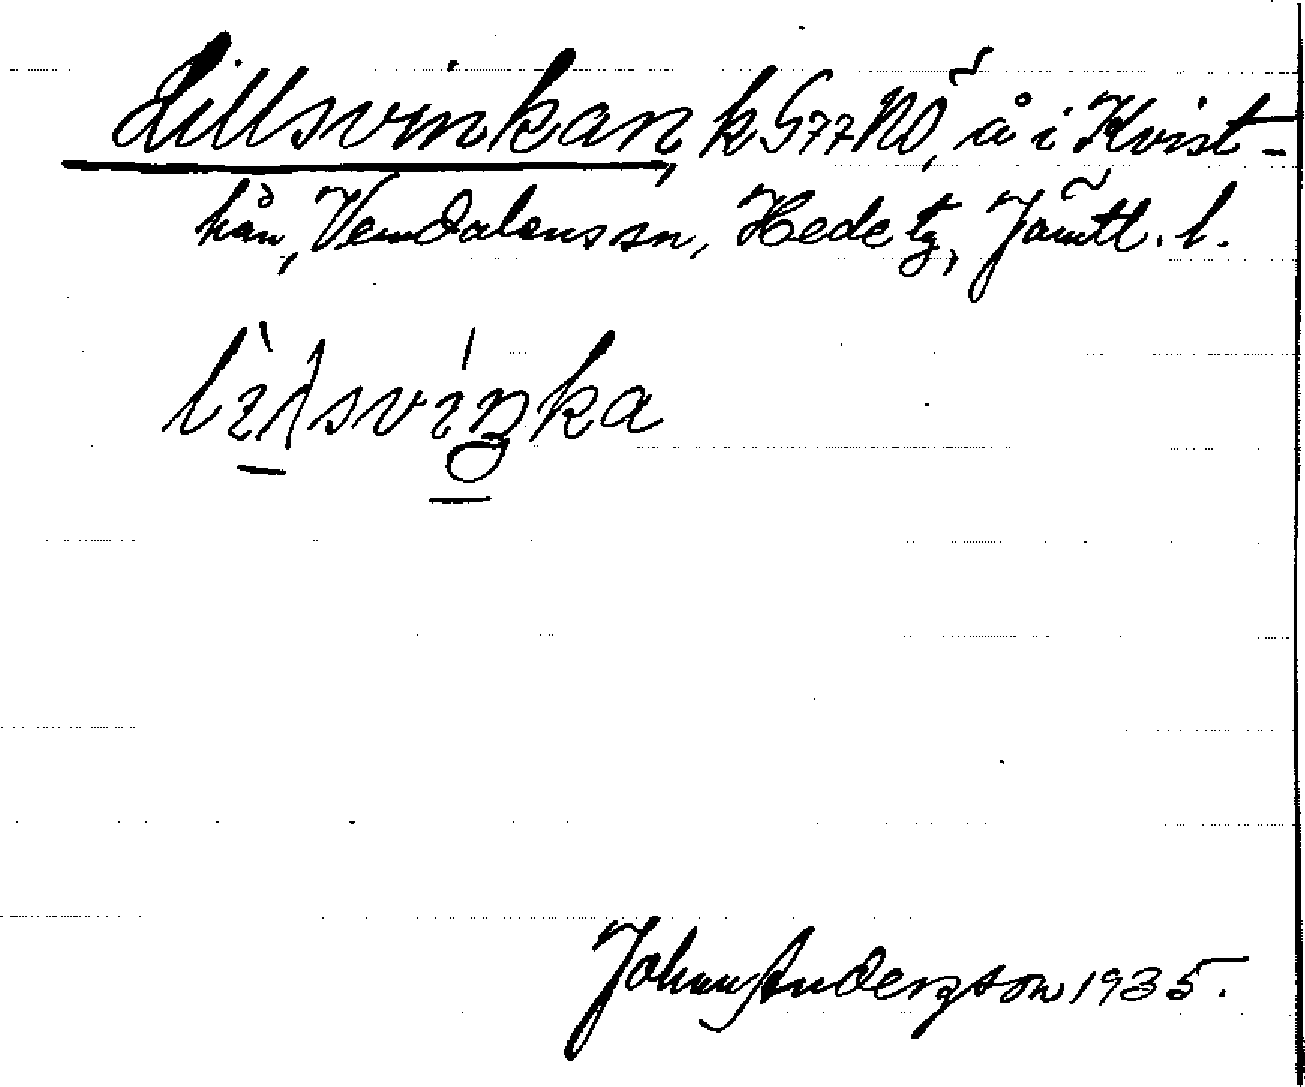 Lillsvinkan, k G77NO, å i Kvist-
hån, Vemdalens sn, Hede tg, Jämtl. l.
lìlsvíŋka
Johan Anderzson 1935.